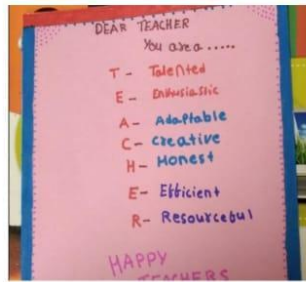 DEAR TEACHER
You are a .....
T - Talented
E - Enthusiastic
A - Adaptable
C - Creative
H - Honest
E - Efficient
R - Resourceful
HAPPY
TEACHERS